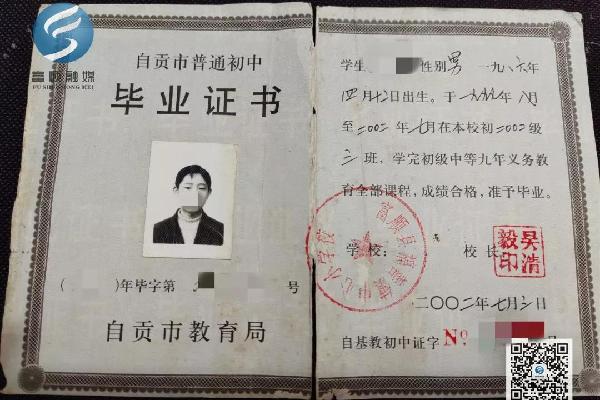 富顺融媒
FU SHUN RONG MEI
自贡市普通初中
毕业证书
( )年毕字第 号
自贡市教育局
学生 性别男 一九八六年
四月十 日出生。于一九九九年八月
至二〇〇二年七月在本校初二〇〇二级
三班，学完初级中等九年义务教
育全部课程，成绩合格，准予毕业。
学校： 校长：
富顺县 中心小学校
吴清毅印
二〇〇二年七月 日
自基教初中证字 №